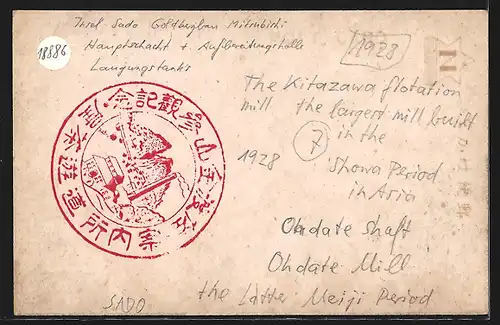 Insel Sado Goldbergbau Mitsubishi
Hauptschacht + Aufbereitungshalle
Laugungstanks
18886
1928
The Kitazawa flotation
mill the largest mill built
in the
7
1928
Showa Period
in Asia
Ohdate Shaft
Ohdate Mill
the Latter Meiji Period
SADO
佐渡金山参觀記念
案内所